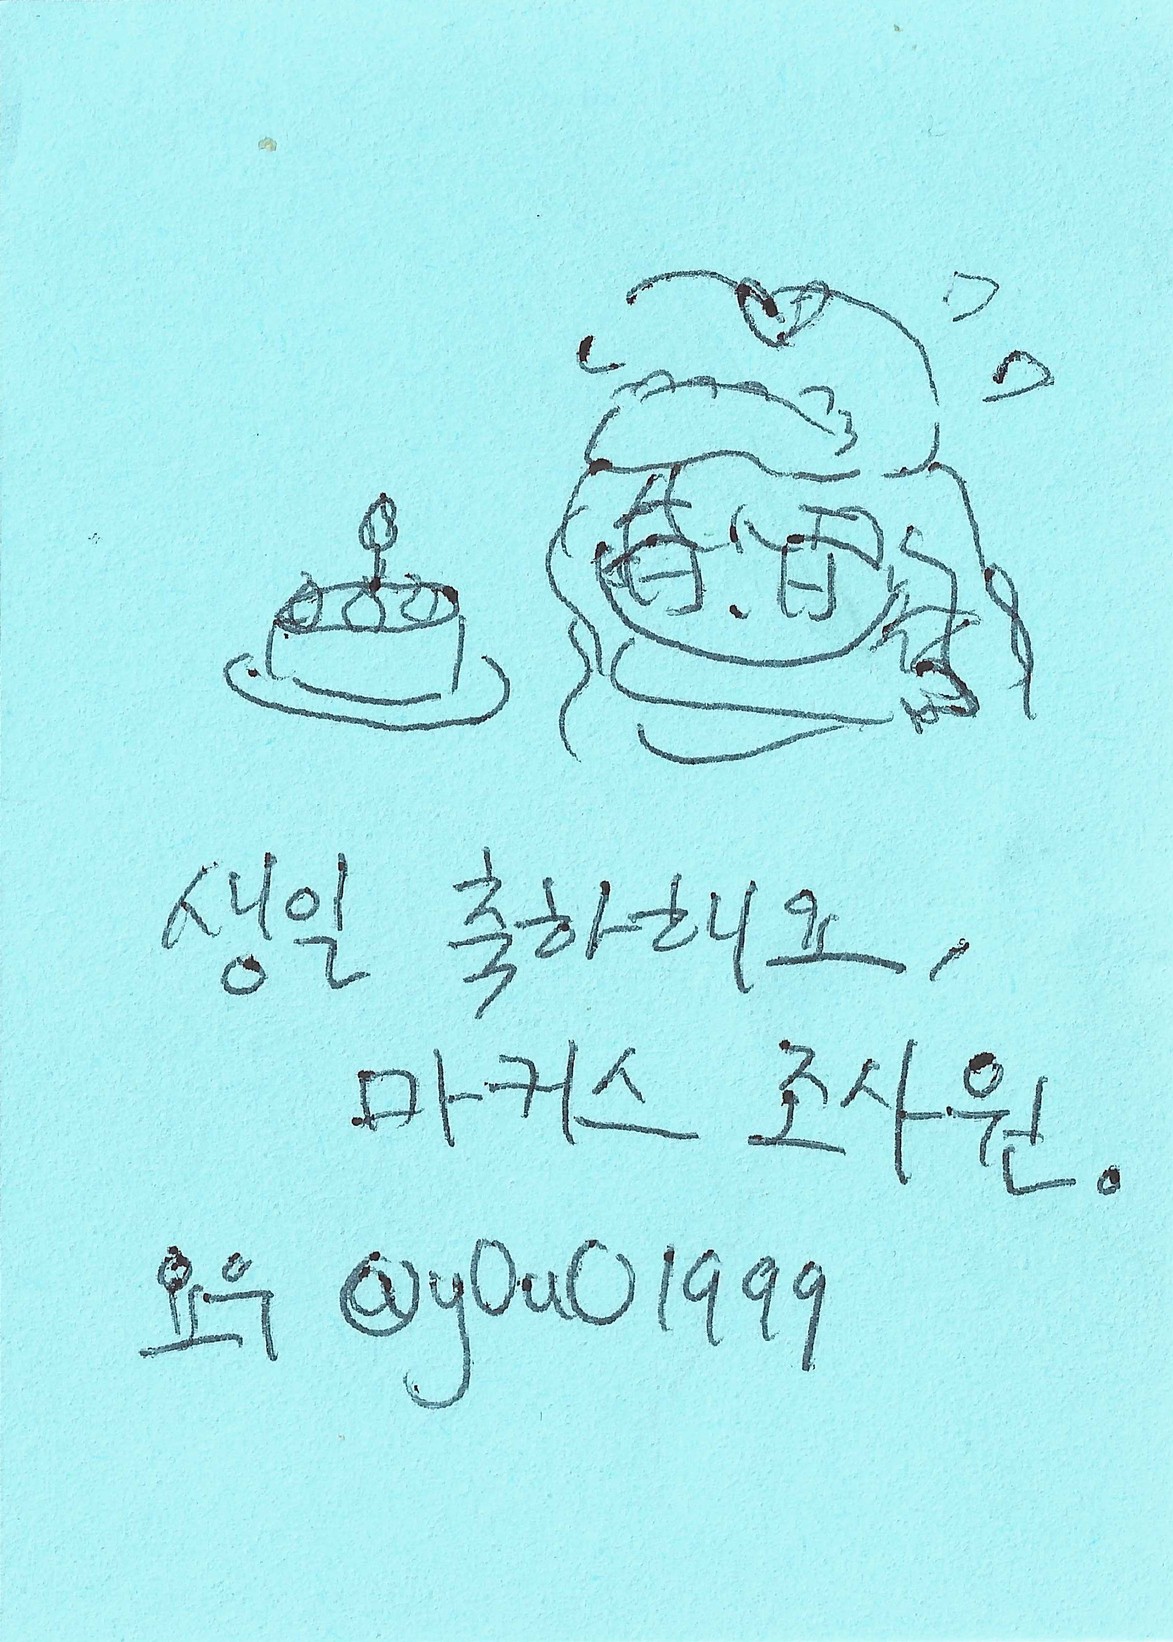 생일 축하해요,
마커스 조사원.
요우 @y0u01999